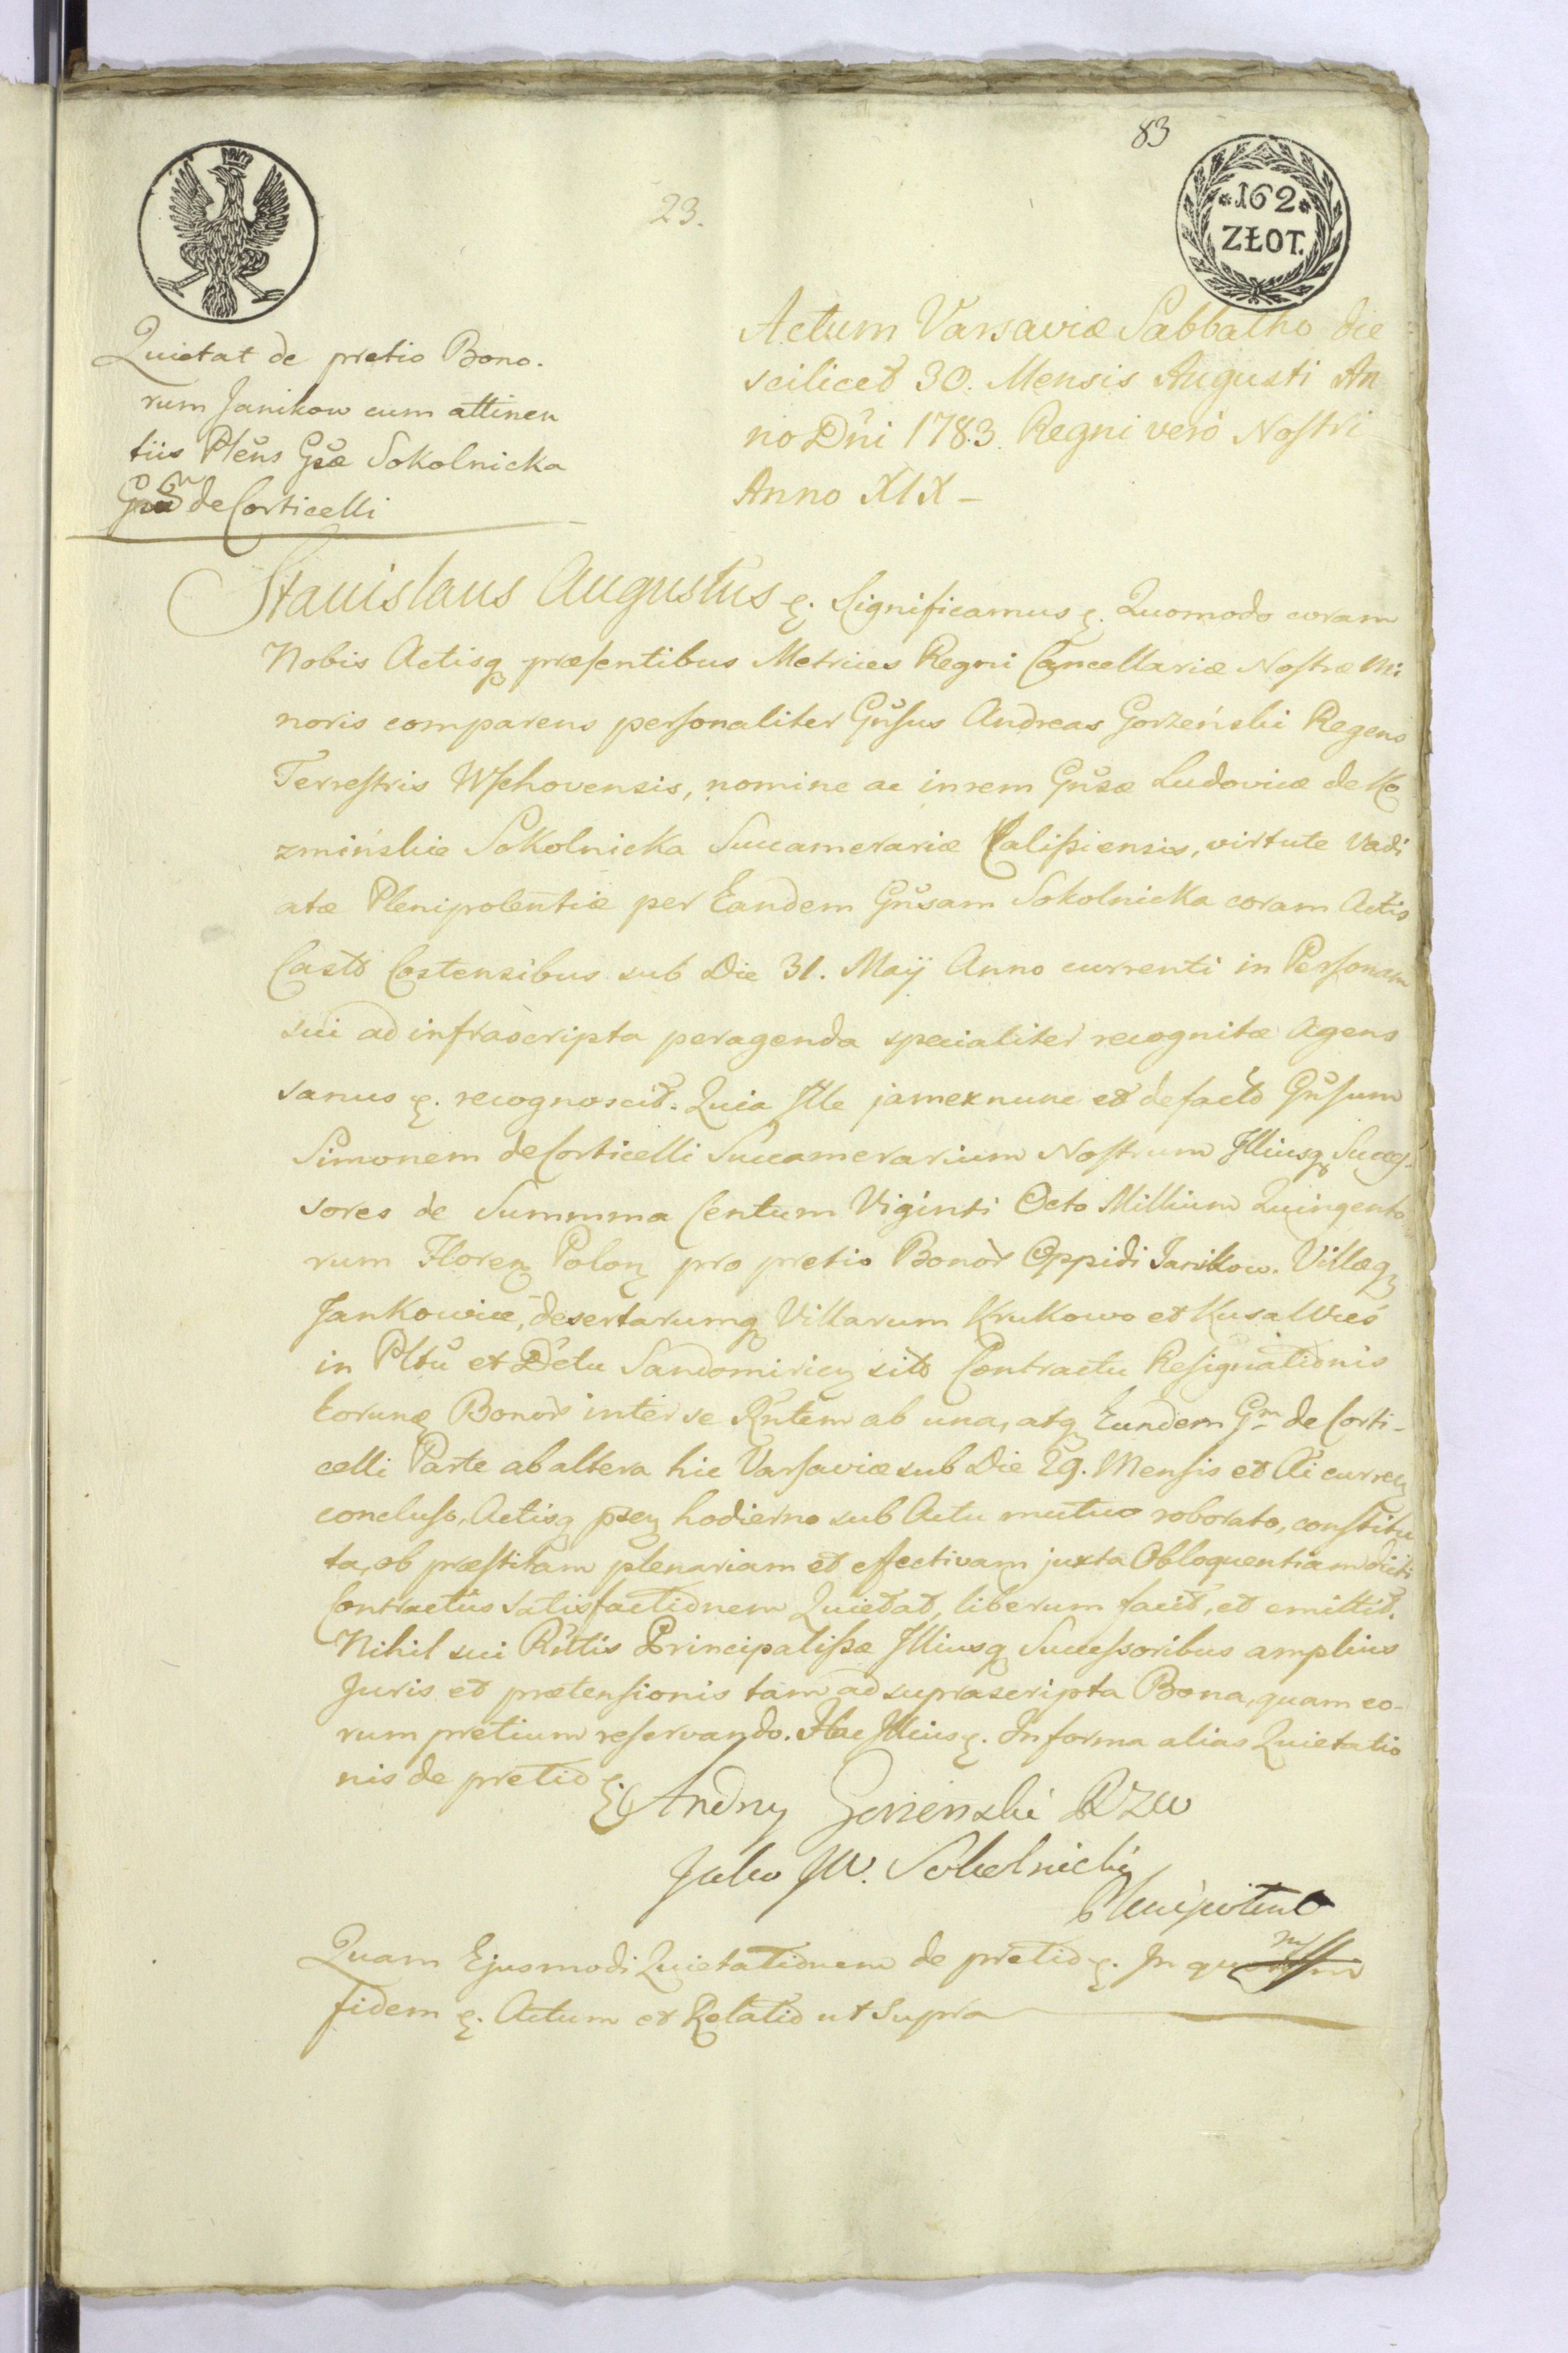 83
23.
*162*
ZŁOT.
Quietat de pretio Bono.
rum Janikow cum attinen
tiis Pleñs Gsæ Sokolnicka
de Corticelli
Actum Varsaviæ Sabbatho die
scilicet 30. Mensis Augusti An
no Dñi 1783. Regni verò Nostri
Anno XIX –
Stanislaus Augustus &. Significamus &. Quomodo coram
Nobis Actisq præsentibus Metrices Regni Cancellariæ Nostræ Mi
noris comparens personaliter Gñsus Andreas Gorzeński Regens
Terrestris Wschovensis, nomine ac in rem Gñsæ Ludovicæ de Ko
zmińskie Sokolnicka Succamerariæ Calissiensis, virtute Vadi
atæ Plenipotentiæ per Eandem Gñsam Sokolnicka coram Actis
Castò Costensibus sub Die 31. Maÿ Anno currenti in Personam
sui ad infrascripta peragenda specialiter recognitæ Agens
sanus &. recognoscit. Quia Ille jam ex nunc et de facto Gñsum
Simonem de Corticelli Succamerarium Nostrum Illiusq Succes-
sores de Summma Centum Viginti Octo Millium Quingento
rum Floren Polon pro pretio Bonor Oppidi Janikow. Villæq
Jankowice, desertarumq Villarum Krukowo et Kusa Wieś
in Pltũ et Dctu Sandomirien sito Contractu Resignationis
Eorunq Bonor inter se Rñtem ab una, atq Eundem Gm de Corti-
celli Parte ab altera hic Varsaviæ sub Die 29. Mensis et Ai curren
concluso, Actisq psen hodierno sub Actu mutuo roborato, constitu
ta, ob præstitam plenariam et effectivam juxta Obloquentiam dicti
Contractus satisfactionem Quietat, liberum facit, et emittit.
Nihil sui Rñtis Principalissæ Illiusq Successoribus amplius
Juris et prætensionis tam ad suprascripta Bona, quam eo-
rum pretium reservando. Hac Illius &. In forma alias Quietatio
nis de pretio &.
Andrzy Gorzenski RZW
Jako JW. Sokolnickiy
Plenipotent
Quam Ejusmodi Quietationem de pretio &. In qu
fidem &. Actum et Relatio ut Supra